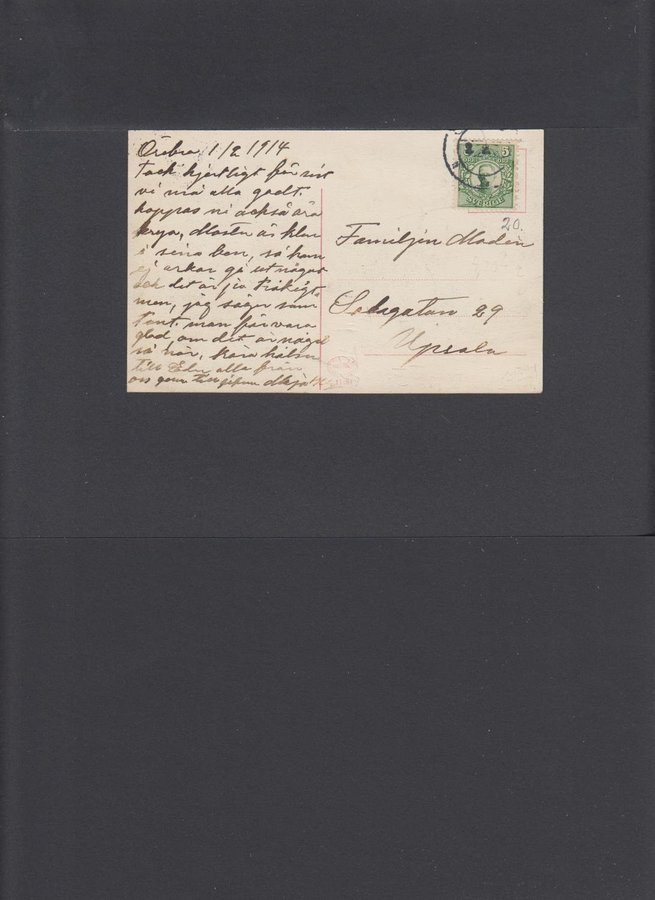 Örebro 1/2 1914
Tack hjertligt för sist
vi må alla godt.
hoppas ni också är
krya, är klen
i sina ben, så hon
ej orkar gå ut något
och det är ju tråkigt
men, jag säger som
man får vara
glad, om det är något
så när, kära hälsn
till Eder alla från
oss
Familjen Modin
Salagatan 29
Upsala
5
SVERIGE
20.